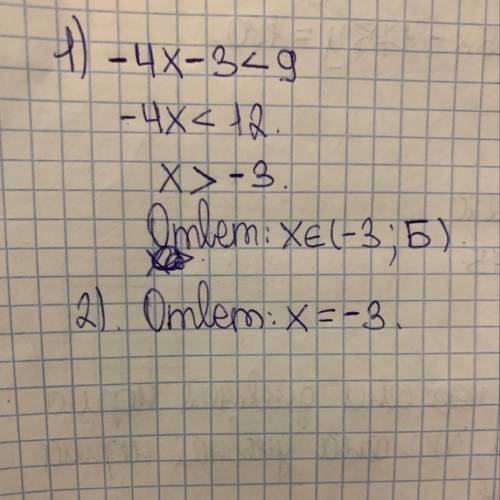 1) -4x-3<9
-4x<12.
x>-3.
Ответ: x∈(-3; Б)
2). Ответ: x=-3.